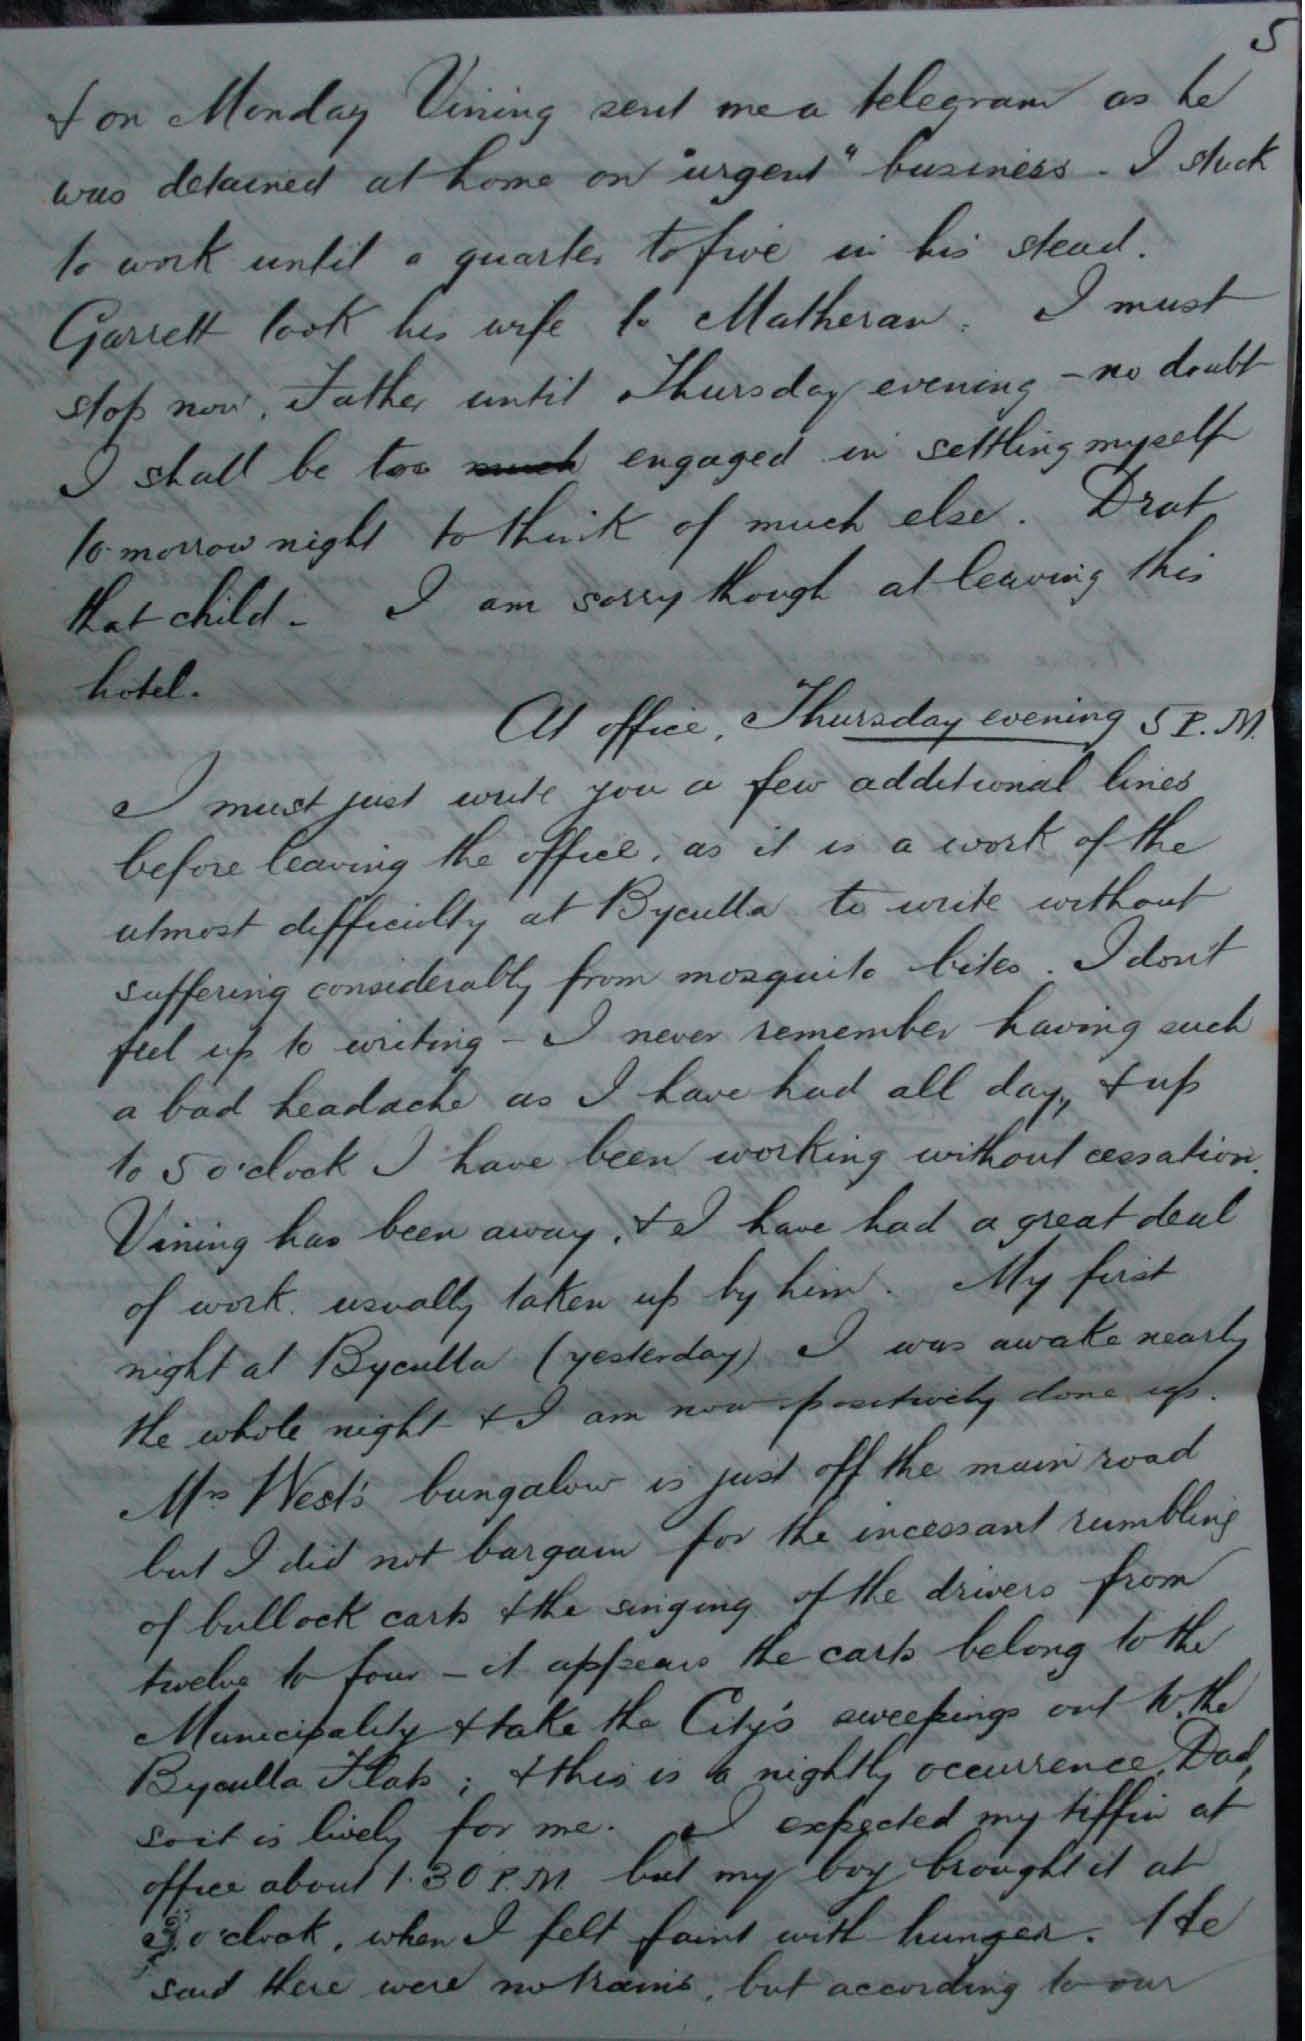 5
& on Monday Vining sent me a telegram as he
was detained at home on "urgent" business - I stuck
to work until a quarter to five in his stead.
Garrett took his wife to Matheran. I must
stop now, Father until Thursday evening - no doubt
I shall be too much engaged in settling myself
to-morrow night to think of much else. Drat
that child - I am sorry though at leaving this
hotel.
At office, Thursday evening 5 P.M.
I must just write you a few additional lines
before leaving the office, as it is a work of the
utmost difficulty at Byculla to write without
suffering considerably from mosquito bites. I don't
feel up to writing - I never remember having such
a bad headache as I have had all day, & up
to 5 o'clock I have been working without cessation.
Vining has been away, & I have had a great deal
of work usually taken up by him. My first
night at Byculla (yesterday) I was awake nearly
the whole night & I am now positively done up.
Mrs West's bungalow is just off the main road
but I did not bargain for the incessant rumbling
of bullock carts & the singing of the drivers from
twelve to four - it appears the carts belong to the
Municipality & take the City's sweepings out to the
Byculla Flats; & this is a nightly occurrence, Dad,
so it is lively for me. I expected my tiffin at
office about 1.30 P.M. but my boy brought it at
3 o'clock, when I felt faint with hunger. He
said there were no trains, but according to our